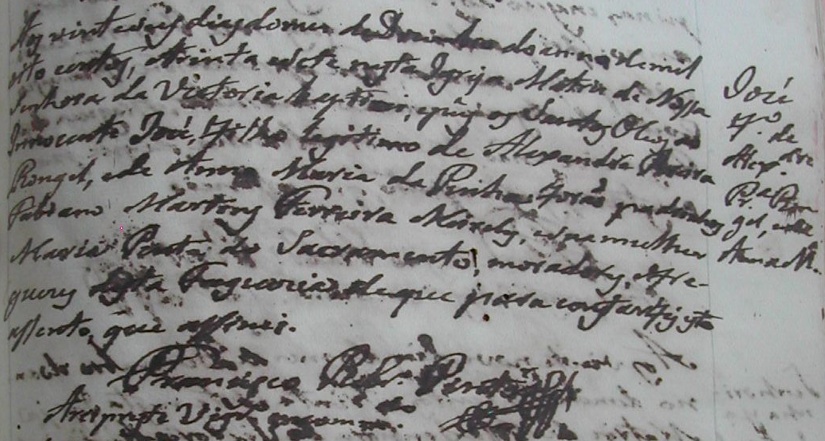 Aos vinte e seis dias do mez de Dezembro do anno de mil
oito centos, e trinta e sete nesta Igreja Matriz de Nossa
Senhora da Victoria baptizei, e puz os Santos Oleos ao
Innocente José, filho legitimo de Alexandre Pereira
Rangel, e de Anna Maria da Penha: forão padrinhos
Fabiano Martins Ferreira Meirels, e sua mulher
Maria Penta do Sacramento, moradores, e fre-
guezes desta Freguezia: de que para constar fiz este
assento, que assinei.
Francisco Ribr.º
Arcipreste Vigr.º encomm.do
José
fº. de
Alex.dre
Pr.ª Ran
gel, e de
Anna M.